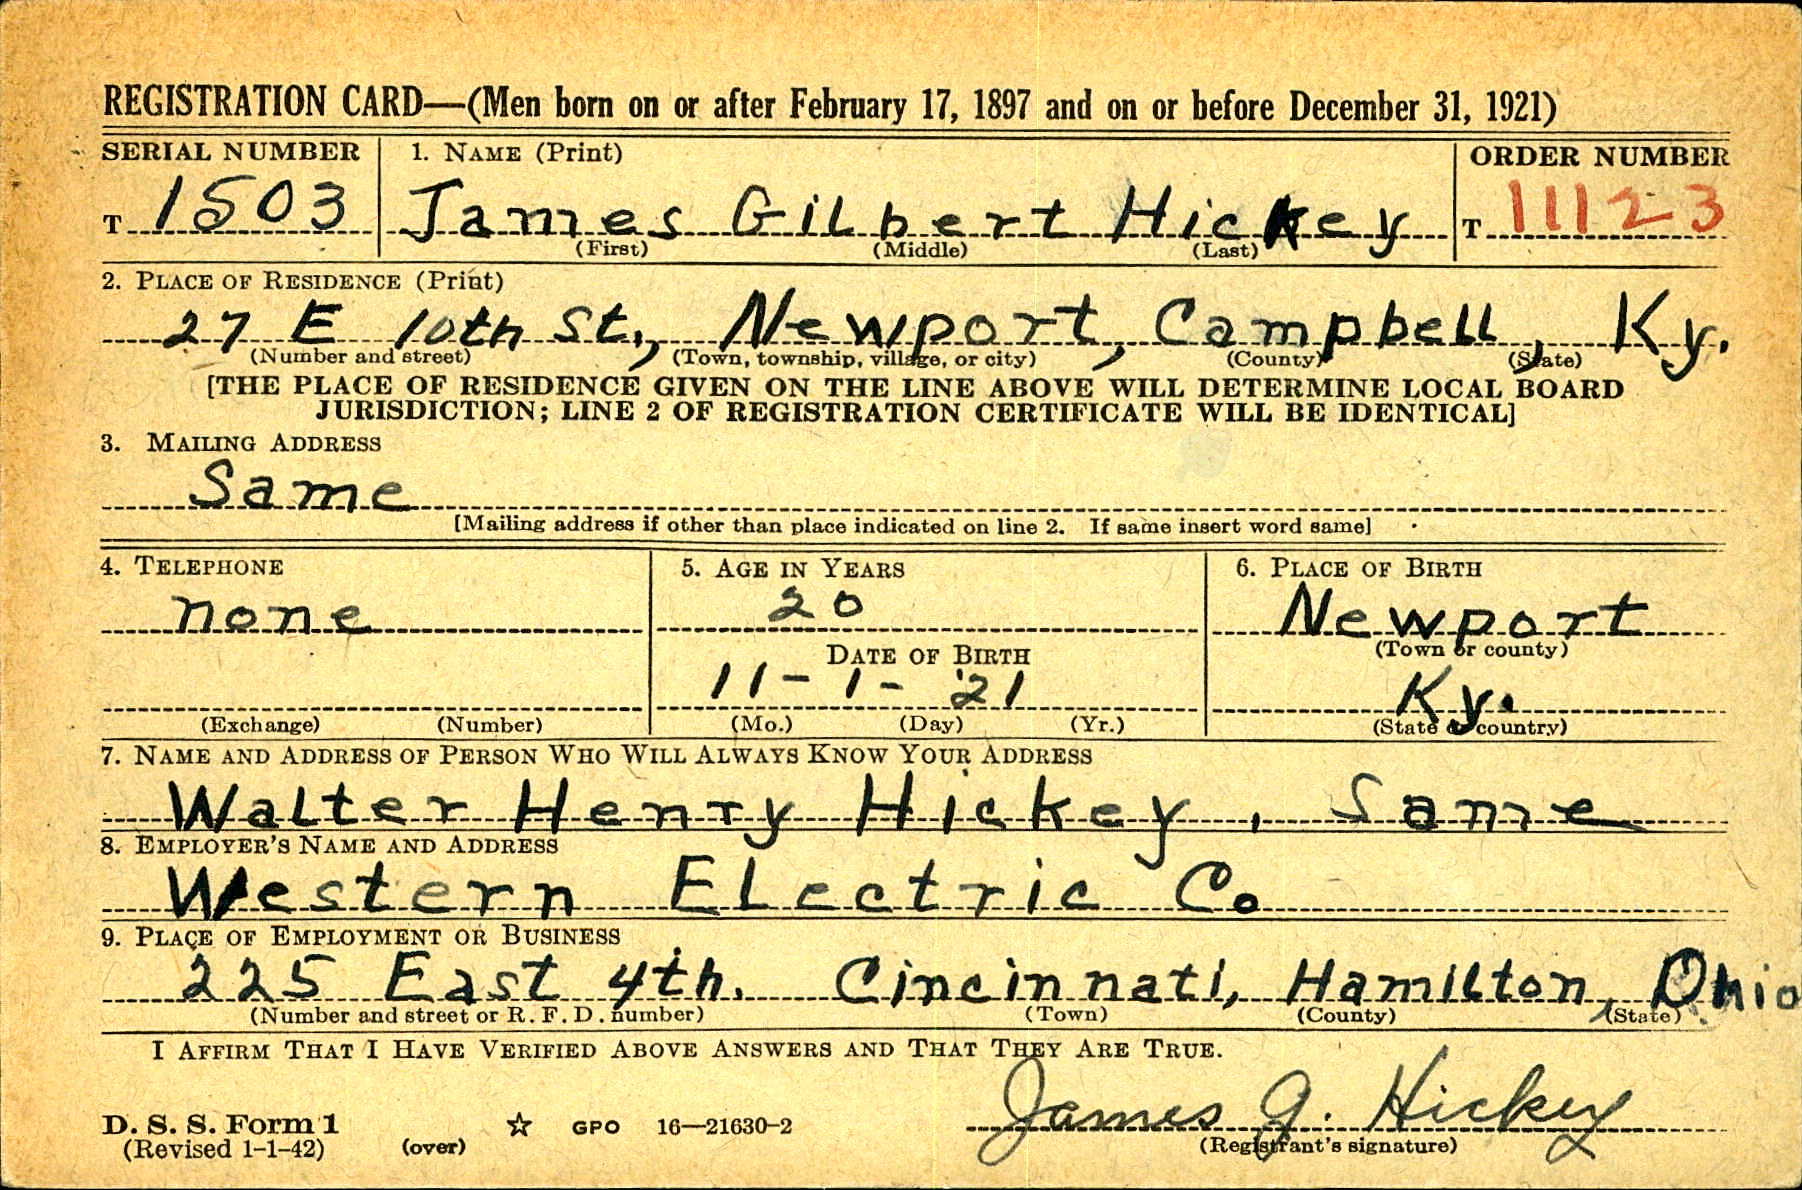 REGISTRATION CARD—(Men born on or after February 17, 1897 and on or before December 31, 1921)
SERIAL NUMBER 1. NAME (Print) ORDER NUMBER
T 1503 James Gilbert Hickey T 11123
(First) (Middle) (Last)
2. PLACE OF RESIDENCE (Print)
27 E 10th St., Newport, Campbell, Ky.
(Number and street) (Town, township, village, or city) (County) (State)
[THE PLACE OF RESIDENCE GIVEN ON THE LINE ABOVE WILL DETERMINE LOCAL BOARD
JURISDICTION; LINE 2 OF REGISTRATION CERTIFICATE WILL BE IDENTICAL]
3. MAILING ADDRESS
Same
[Mailing address if other than place indicated on line 2. If same insert word same]
4. TELEPHONE 5. AGE IN YEARS 6. PLACE OF BIRTH
none 20 Newport
DATE OF BIRTH (Town or county)
11-1-'21 Ky.
(Exchange) (Number) (Mo.) (Day) (Yr.) (State or country)
7. NAME AND ADDRESS OF PERSON WHO WILL ALWAYS KNOW YOUR ADDRESS
Walter Henry Hickey, Same
8. EMPLOYER'S NAME AND ADDRESS
Western Electric Co
9. PLACE OF EMPLOYMENT OR BUSINESS
225 East 4th. Cincinnati, Hamilton, Ohio
(Number and street or R. F. D. number) (Town) (County) (State)
I AFFIRM THAT I HAVE VERIFIED ABOVE ANSWERS AND THAT THEY ARE TRUE.
James G. Hickey
D. S. S. Form 1 ☆ GPO 16—21630-2
(Revised 1-1-42) (over) (Registrant's signature)